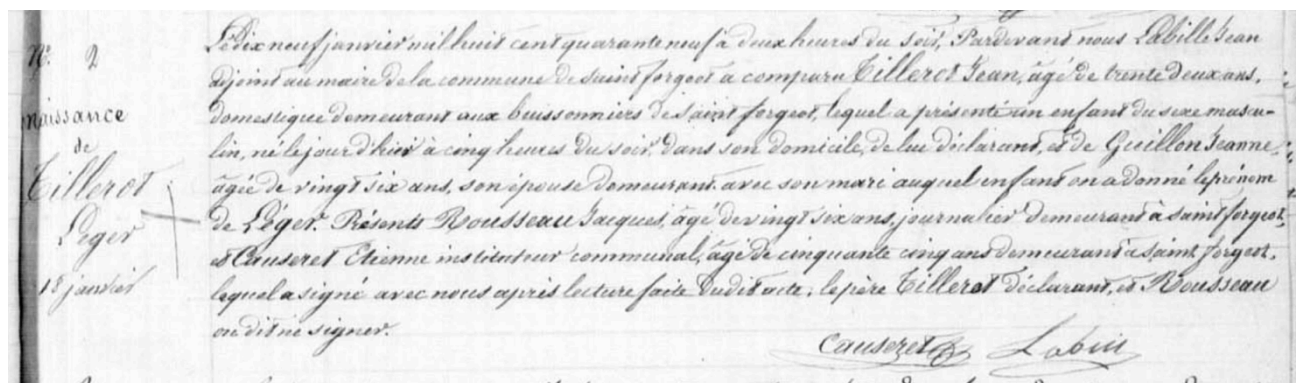 N.° 2
naissance
de
Tillerot
Léger
18 janvier
Le dix neuf janvier mil huit cent quarante neuf à deux heures du soir, Pardevant nous Labille Jean
adjoint au maire de la commune de saint forgeot a comparu Tillerot Jean, âgé de trente deux ans,
domestique demeurant aux buissonniers de saint forgeot, lequel a présenté un enfant du sexe mascu-
lin, né le jour d'hier à cinq heures du soir, dans son domicile, de lui déclarant, et de Guillon Jeanne,
agée de vingt six ans, son épouse demeurant avec son mari auquel enfant on a donné le prénom
de Léger. Présents Rousseau Jacques, âgé de vingt six ans, journalier demeurant à saint forgeot,
et Causeret Etienne instituteur communal, âgé de cinquante cinq ans demeurant a saint forgeot,
lequel a signé avec nous après lecture faite dudit acte, le père Tillerot déclarant, et Rousseau
on dit ne signer.
Causeret